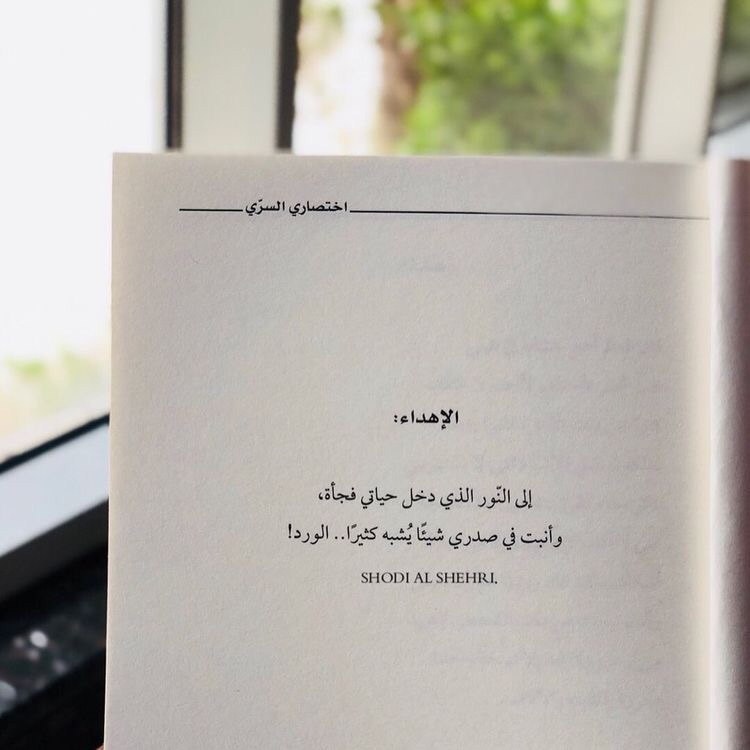 اختصاري السرّي
الإهداء:
إلى النّور الذي دخل حياتي فجأة،
وأنبت في صدري شيئًا يُشبه كثيرًا.. الورد!
SHODI AL SHEHRI.